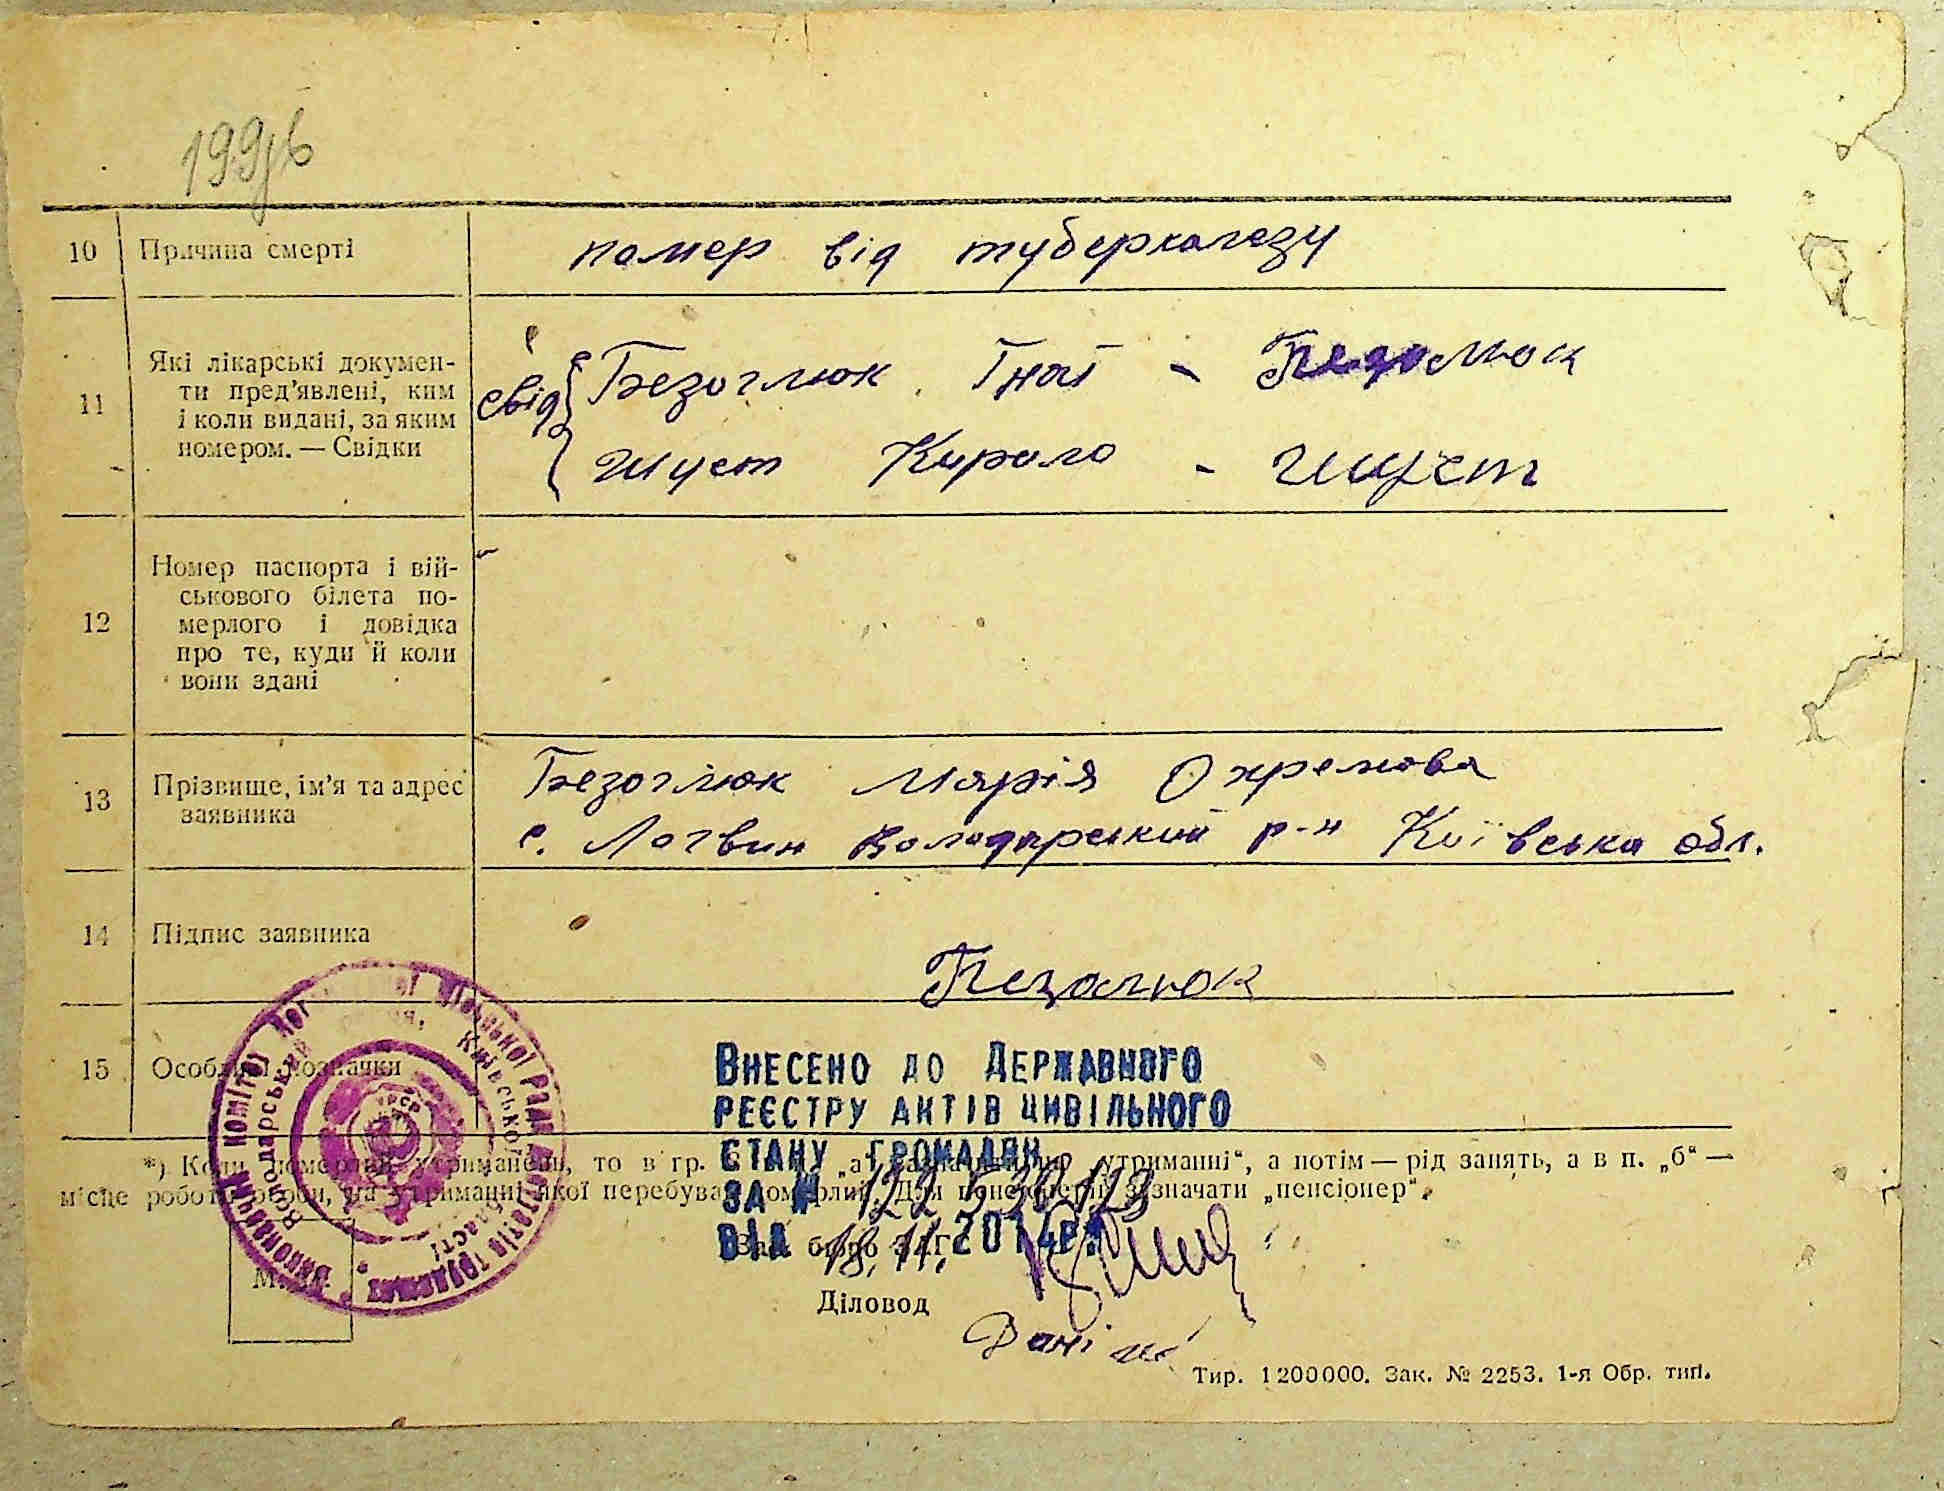 199зв
10 Причина смерті
помер від туберкалезу
11 Які лікарські докумен-
ти пред'явлені, ким
і коли видані, за яким
номером. — Свідки
свід
Безоглюк Гнат -
Шуст Кирило - Шуст
12 Номер паспорта і вій-
ськового білета по-
мерлого і довідка
про те, куди й коли
вони здані
13 Прізвище, ім'я та адрес
заявника
Безоглюк Марія Охремова
с. Логвин Володарський р-н Київська обл.
14 Підпис заявника
15 Особливі позначки
Внесено до Державного
реєстру актів цивільного
стану громадян
за №
від 18.11.2014р.
*) Коли померлий утриманець, то в гр. „а“ утриманні“, а потім — рід занять, а в п. „б“ —
місце роботи особи, на утриманні якої перебував померлий. Для пенсіонерів зазначати „пенсіонер“.
Зав. бюро ЗАГС
М. П.
Діловод
Виконавчий комітет Логвинської сільської Ради депутатів трудящих
Володарський район, Київської області
УРСР
Тир. 1200000. Зак. № 2253. 1-я Обр. тип.